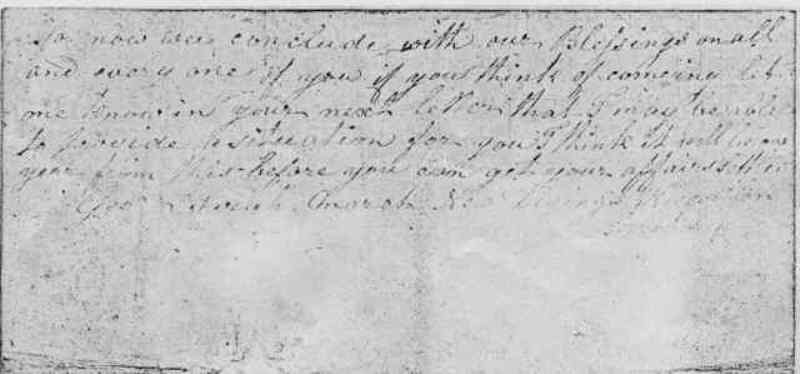 So now we conclude with our Blessings on all
and every one of you if you think of comeing let
me know in your next letter that I may be able
to provide a situation for you I think it will be one
year from this before you can get your affairs